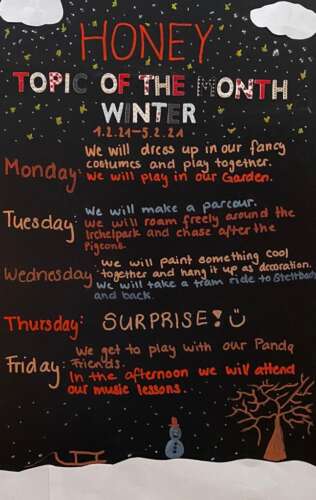 HONEY
TOPIC OF THE MONTH
WINTER
1.2.21-5.2.21
We will dress up in our fancy
costumes and play together.
Monday: We will play in our Garden.
We will make a parcour.
Tuesday: We will roam freely around the
Irchelpark and chase after the
Pigeons.
We will paint something cool
Wednesday: together and hang it up as decoration.
We will take a tram ride to Stettbach
and back.
Thursday: SURPRISE!
We get to play with our Panda
Friday: Friends.
In the afternoon we will attend
our music lessons.